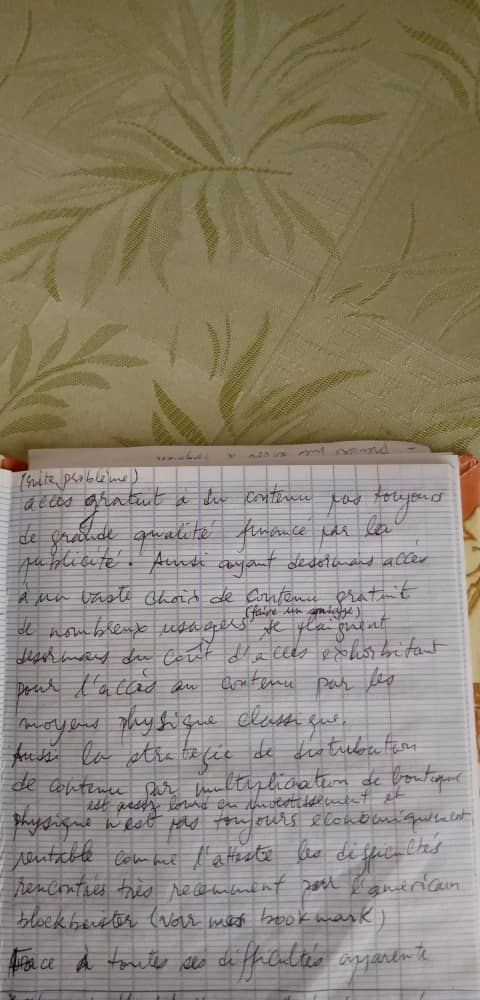 (suite problème)
accès gratuit à du contenu pas toujours
de grande qualité financé par la
publicité. Ainsi ayant desormais accès
à un vaste choix de contenu gratuit
(faire un sondage)
de nombreux usagers se plaignent
desormais du coût d'accès exhorbitant
pour l'accès au contenu par les
moyens physique classique.
Aussi la stratégie de distribution
de contenu par multiplication de boutique
est assez lourd en investissement et
physique n'est pas toujours économiquement
rentable comme l'atteste les difficultés
rencontrés très recemment par l'américain
blockbuster (voir mes bookmark)
Face à toutes ses difficultés apparente